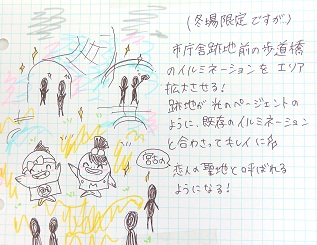 (冬場限定ですが)
市庁舎跡地前の歩道橋
のイルミネーションを エリア
拡大させる!
跡地が光のページェントの
ように、既存のイルミネーション
と合わさってキレイに名
宮古の
恋人の聖地と呼ばれる
ようになる!